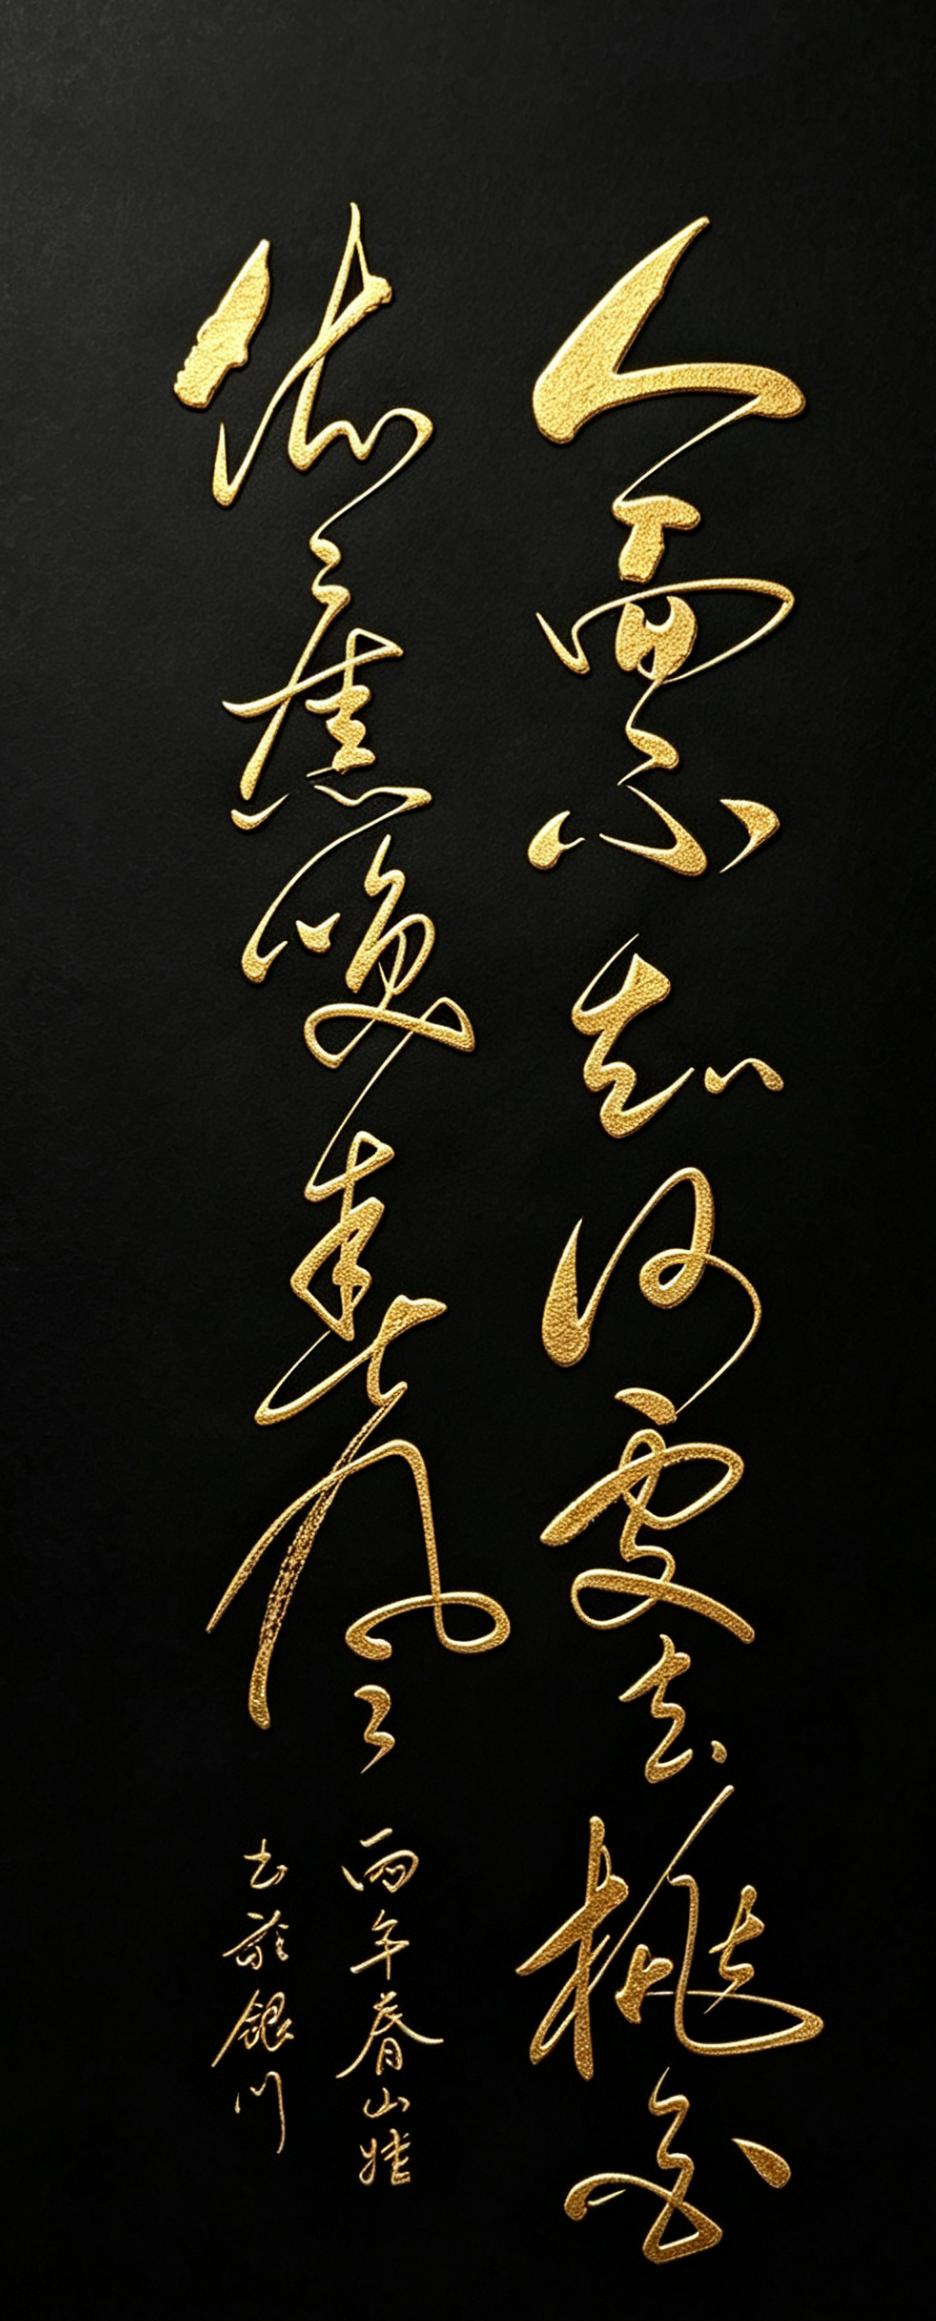 人面不知何处去桃花
依旧笑春风
丙年春山
书于银川